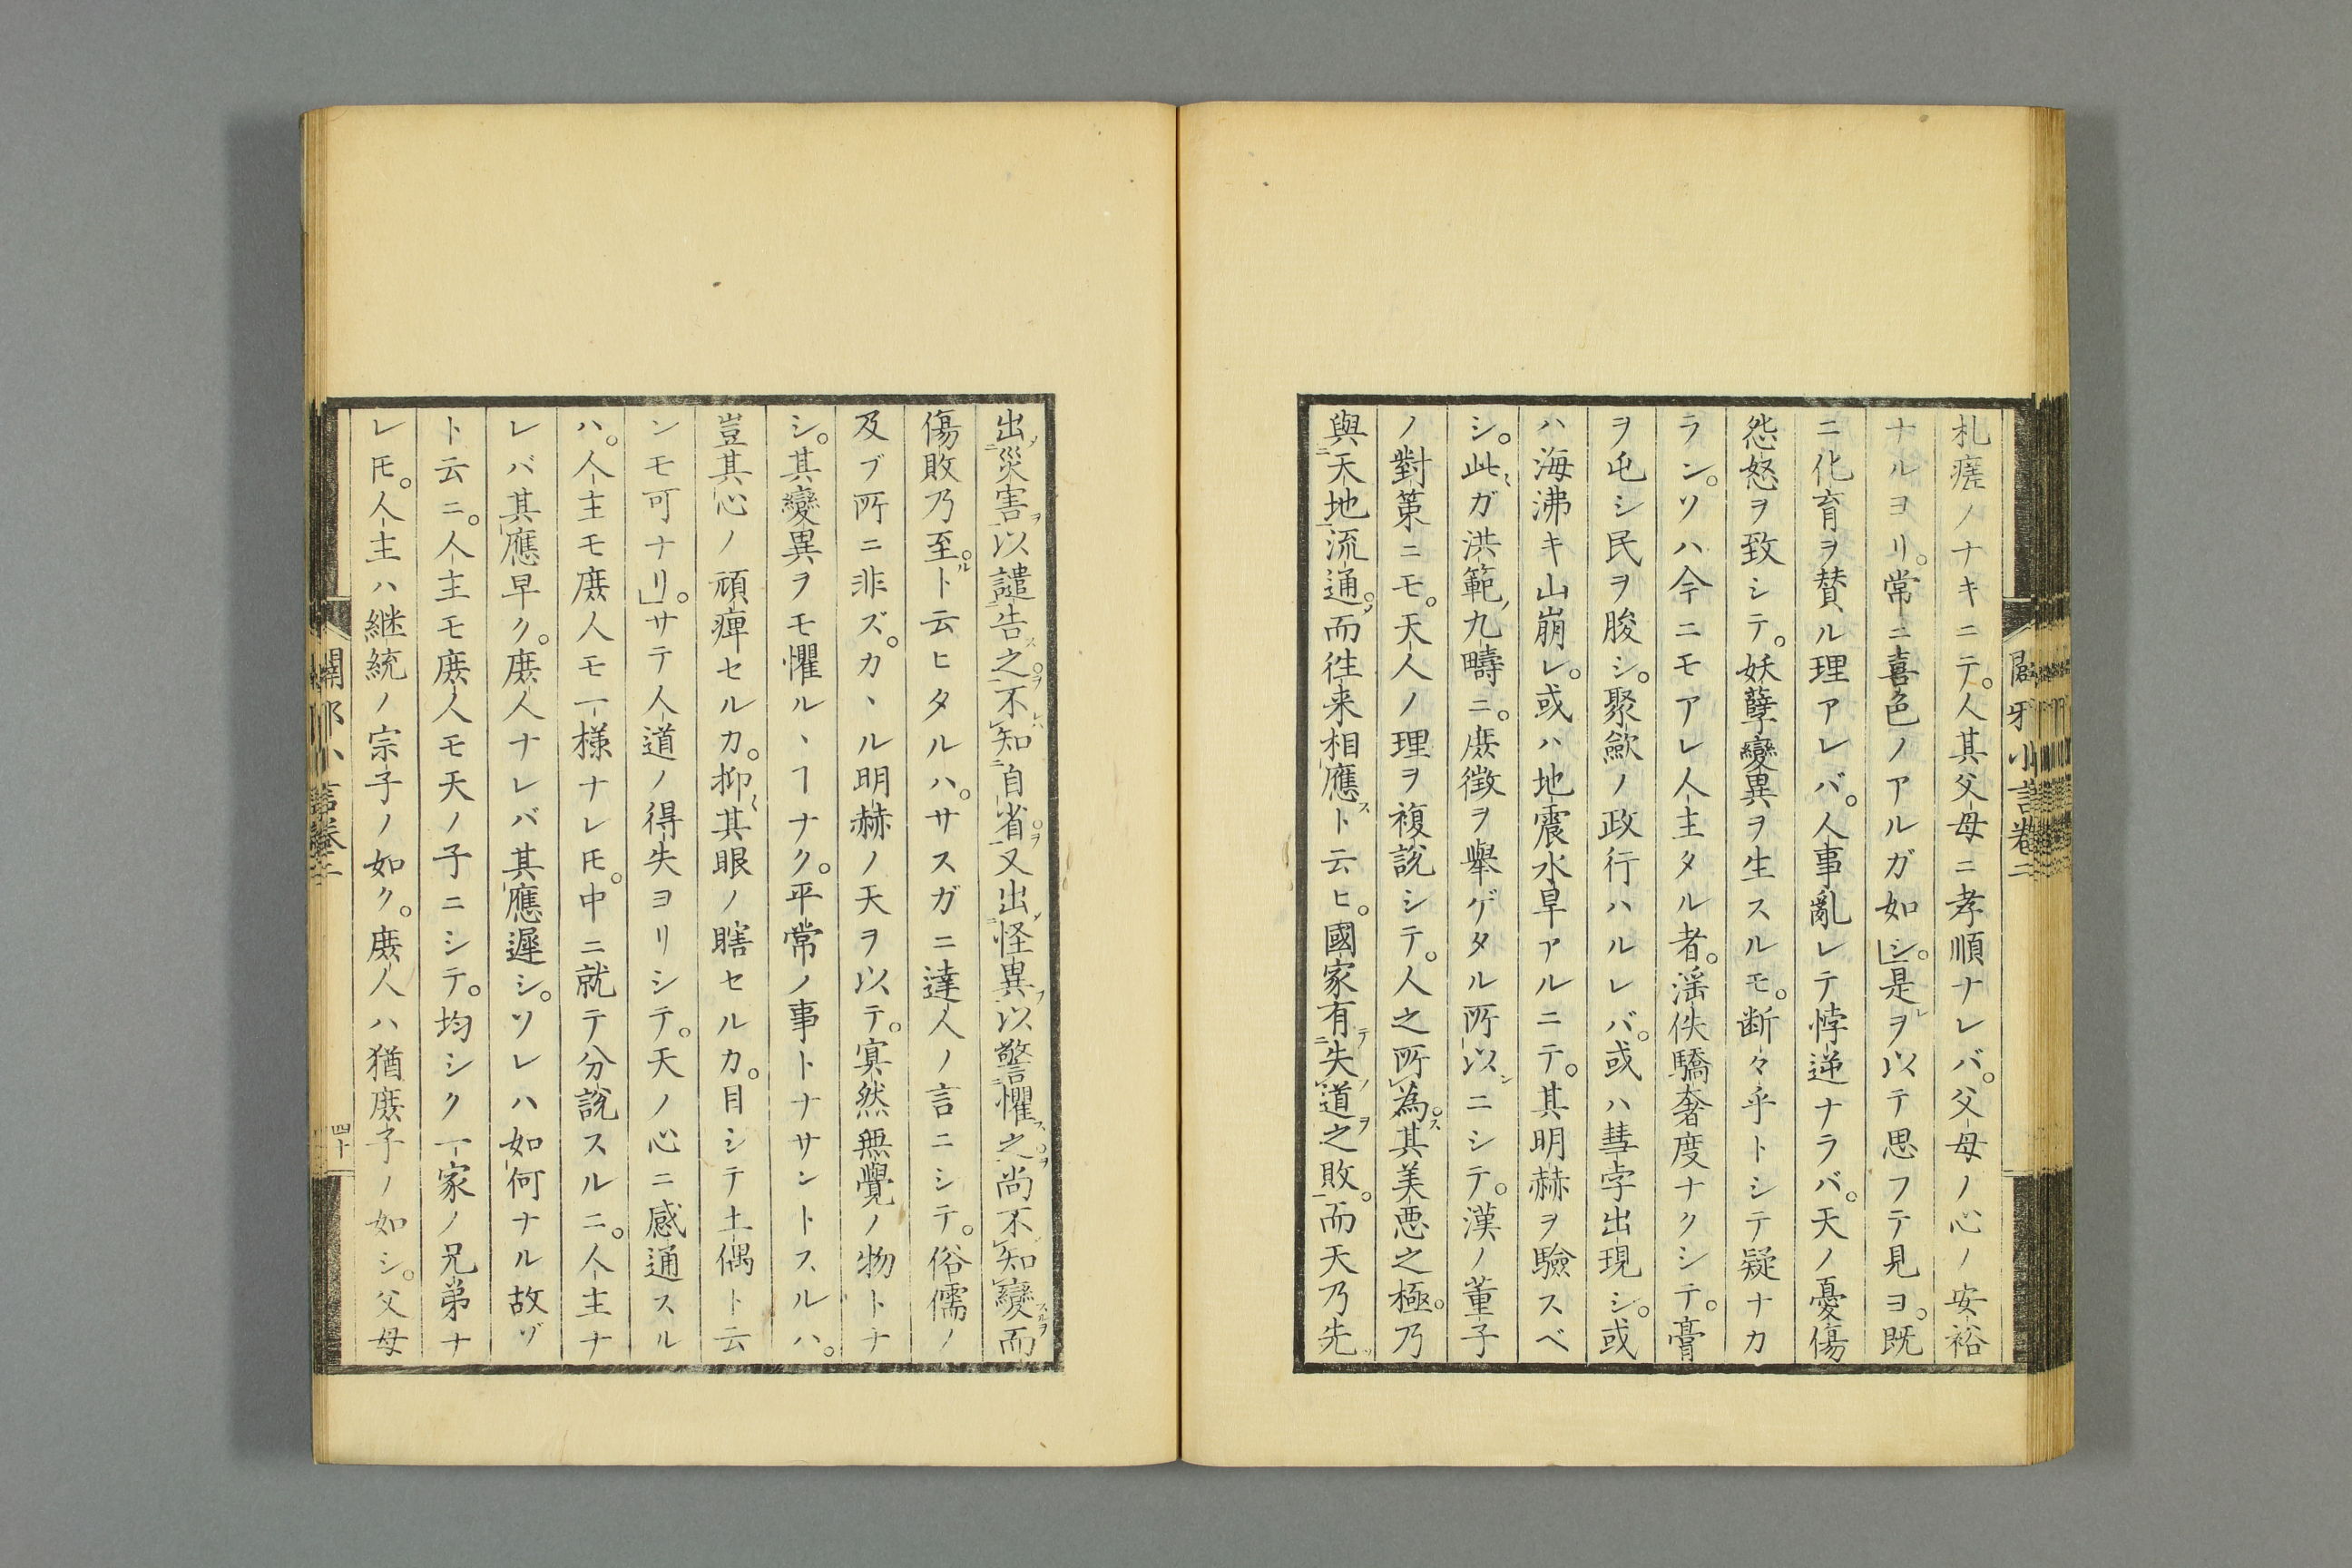 札瘥ノナキニテ。人其父母ニ孝順ナレバ。父母ノ心ノ安裕
ナルヨリ。常ニ喜色ノアルガ如シ」。是ヲ以テ思フテ見ヨ。既
ニ化育ヲ賛ル理アレバ。人事亂レテ悖逆ナラバ。天ノ憂傷
怨怒ヲ致シテ。妖孽變異ヲ生スルモ。断々乎トシテ疑ナカ
ラン。ソハ今ニモアレ人主タル者。滛佚驕奢度ナクシテ。膏
ヲ屯シ民ヲ朘シ。聚歛ノ政行ハルレバ。或ハ彗孛出現シ。或
ハ海沸キ山崩レ。或ハ地震水旱アルニテ。其明赫ヲ驗スベ
シ。此ガ洪範九疇ニ。庶徴ヲ舉ゲタル所以ニシテ。漢ノ董子
ノ對策ニモ。天人ノ理ヲ複説シテ。人之所為。其美悪之極。乃
與天地流通。而徃来相應ト云ヒ。國家有失道之敗。而天乃先
出災害以譴告之。不知自省。又出怪異以警懼之。尚不知變而
傷敗乃至。ト云ヒタルハ。サスガニ達人ノ言ニシテ。俗儒ノ
及ブ所ニ非ズ。カヽル明赫ノ天ヲ以テ。寞然無覺ノ物トナ
シ。其變異ヲモ懼ルヽヿナク。平常ノ事トナサントスルハ。
豈其心ノ頑痺セルカ。抑其眼ノ瞎セルカ。目シテ土偶ト云
ンモ可ナリ」。サテ人道ノ得失ヨリシテ。天ノ心ニ感通スル
ハ。人主モ庶人モ一様ナレ𪜈。中ニ就テ分説スルニ。人主ナ
レバ其應早ク。庶人ナレバ其應遲シ。ソレハ如何ナル故ゾ
ト云ニ。人主モ庶人モ天ノ子ニシテ。均シク一家ノ兄弟ナ
レ𪜈。人主ハ継統ノ宗子ノ如ク。庶人ハ猶庶子ノ如シ。父母
四十